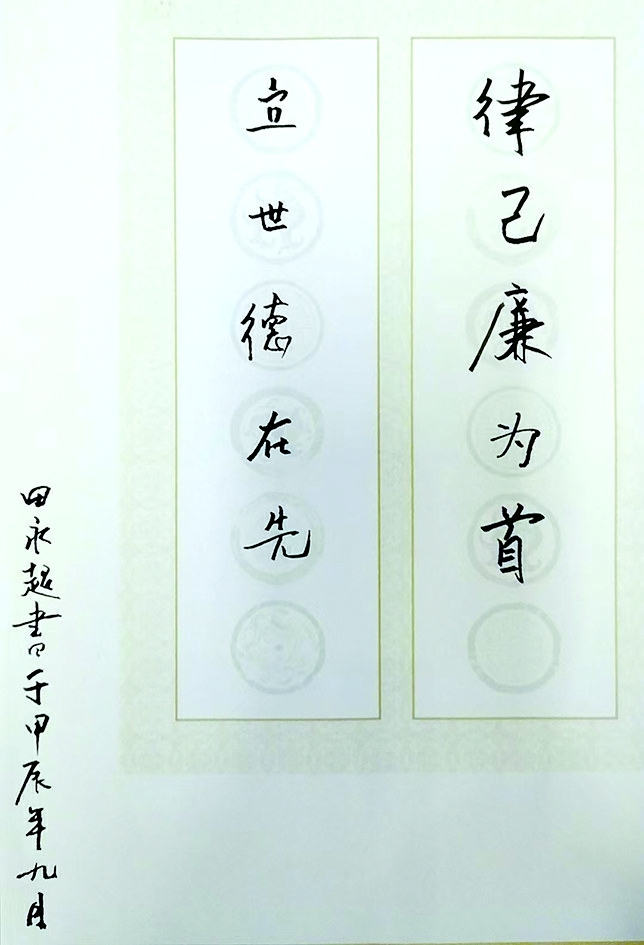 律己廉为首
立世德在先
田永超书于甲辰年九月